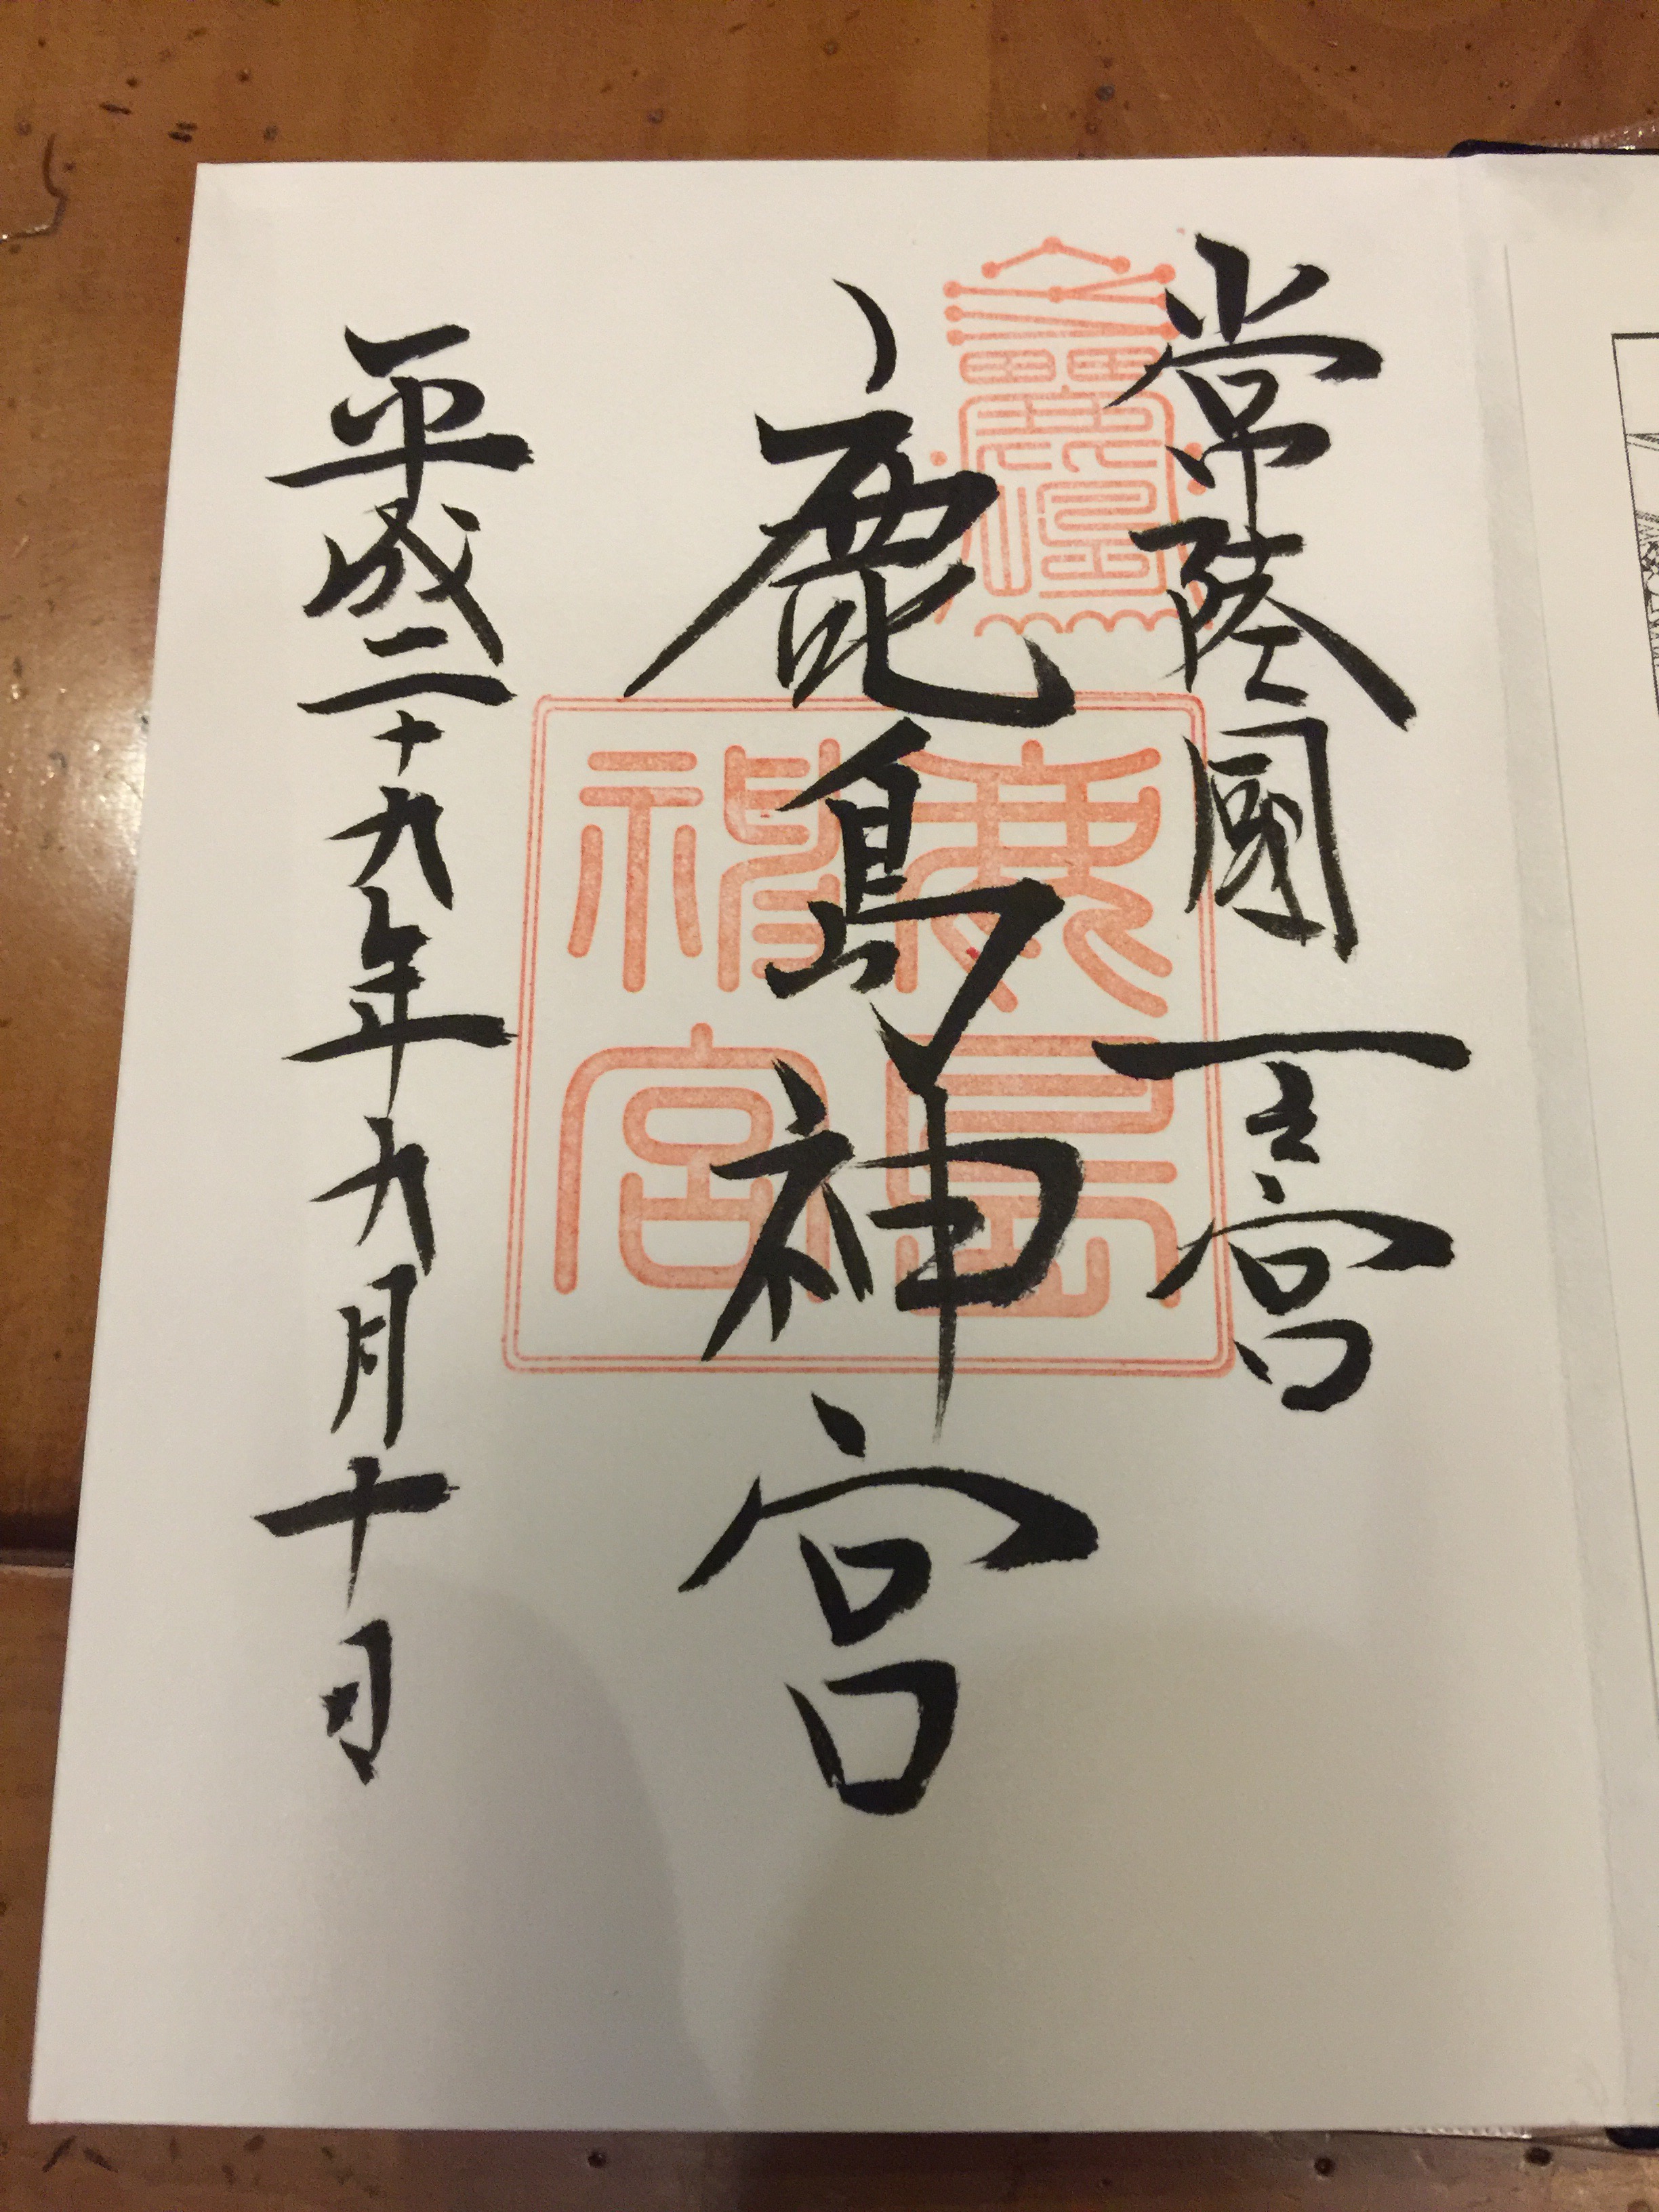 常陸國一之宮
鹿島神宮
平成二十九年九月十日
鹿島神宮